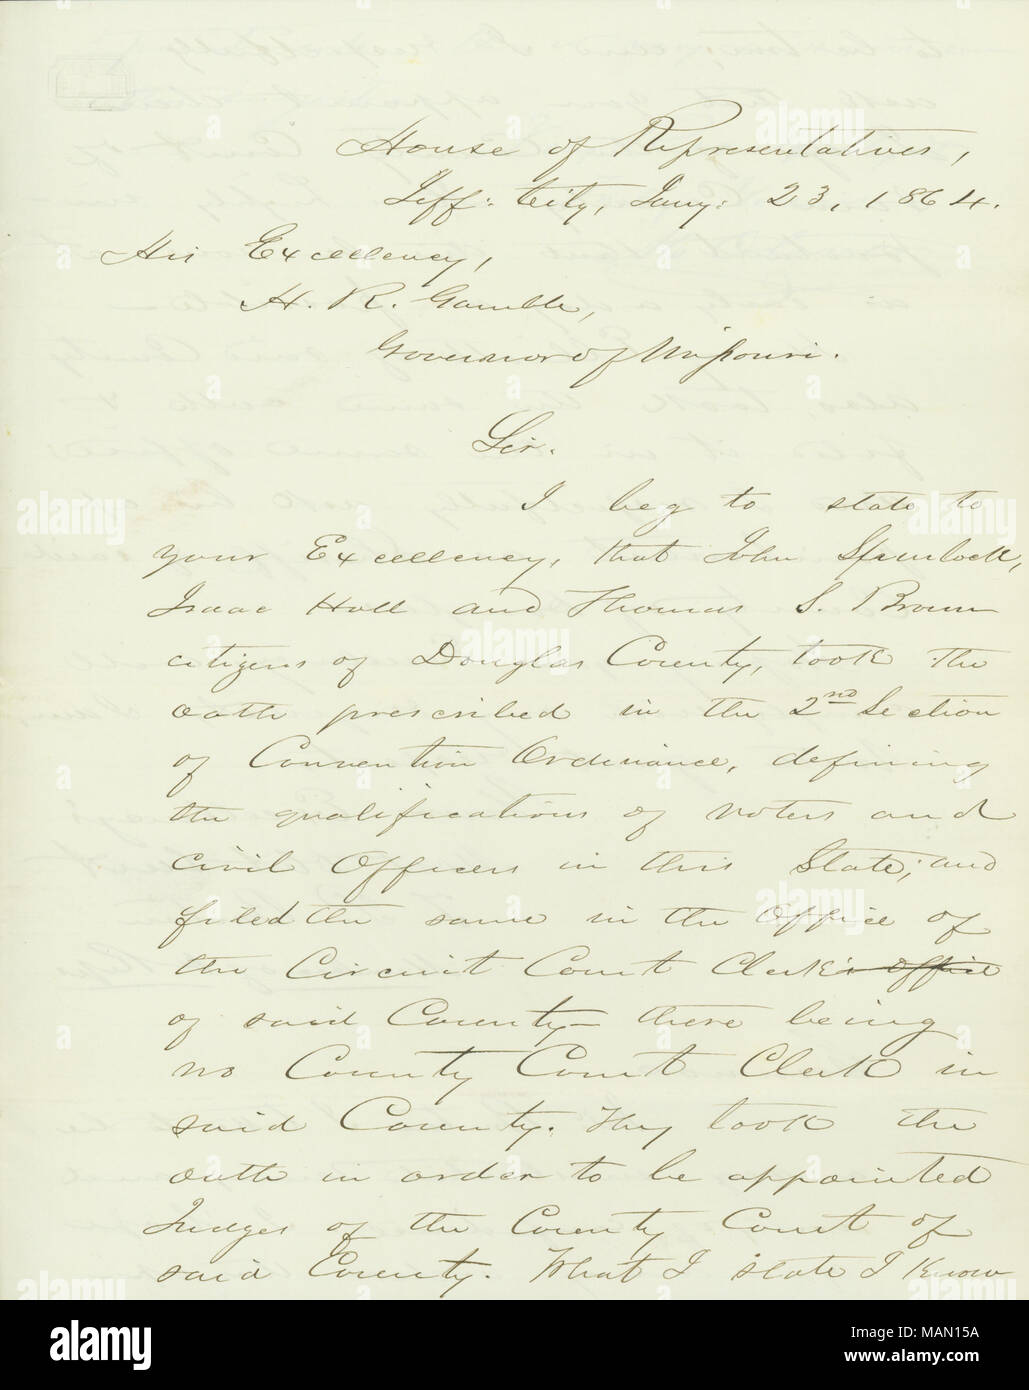 House of Representatives,
Jeff: City, Jany: 23, 1864.
His Excellency,
H. R. Gamble,
Governor of Missouri.
Sir.
I beg to state to
your Excellency, that John Spurlock,
Isaac Hall and Thomas S. Brown
citizens of Douglas County, took the
oath prescribed in the 2nd Section
of Convention Ordinance, defining
the qualifications of voters and
civil Officers in this State; and
filed the same in the Office of
the Circuit Court Clerk's office
of said County— there being
no County Court Clerk in
said County. They took the
oath in order to be appointed
Judges of the County Court of
said County. What I state I know
alamy
Image ID: MAN15A
www.alamy.com